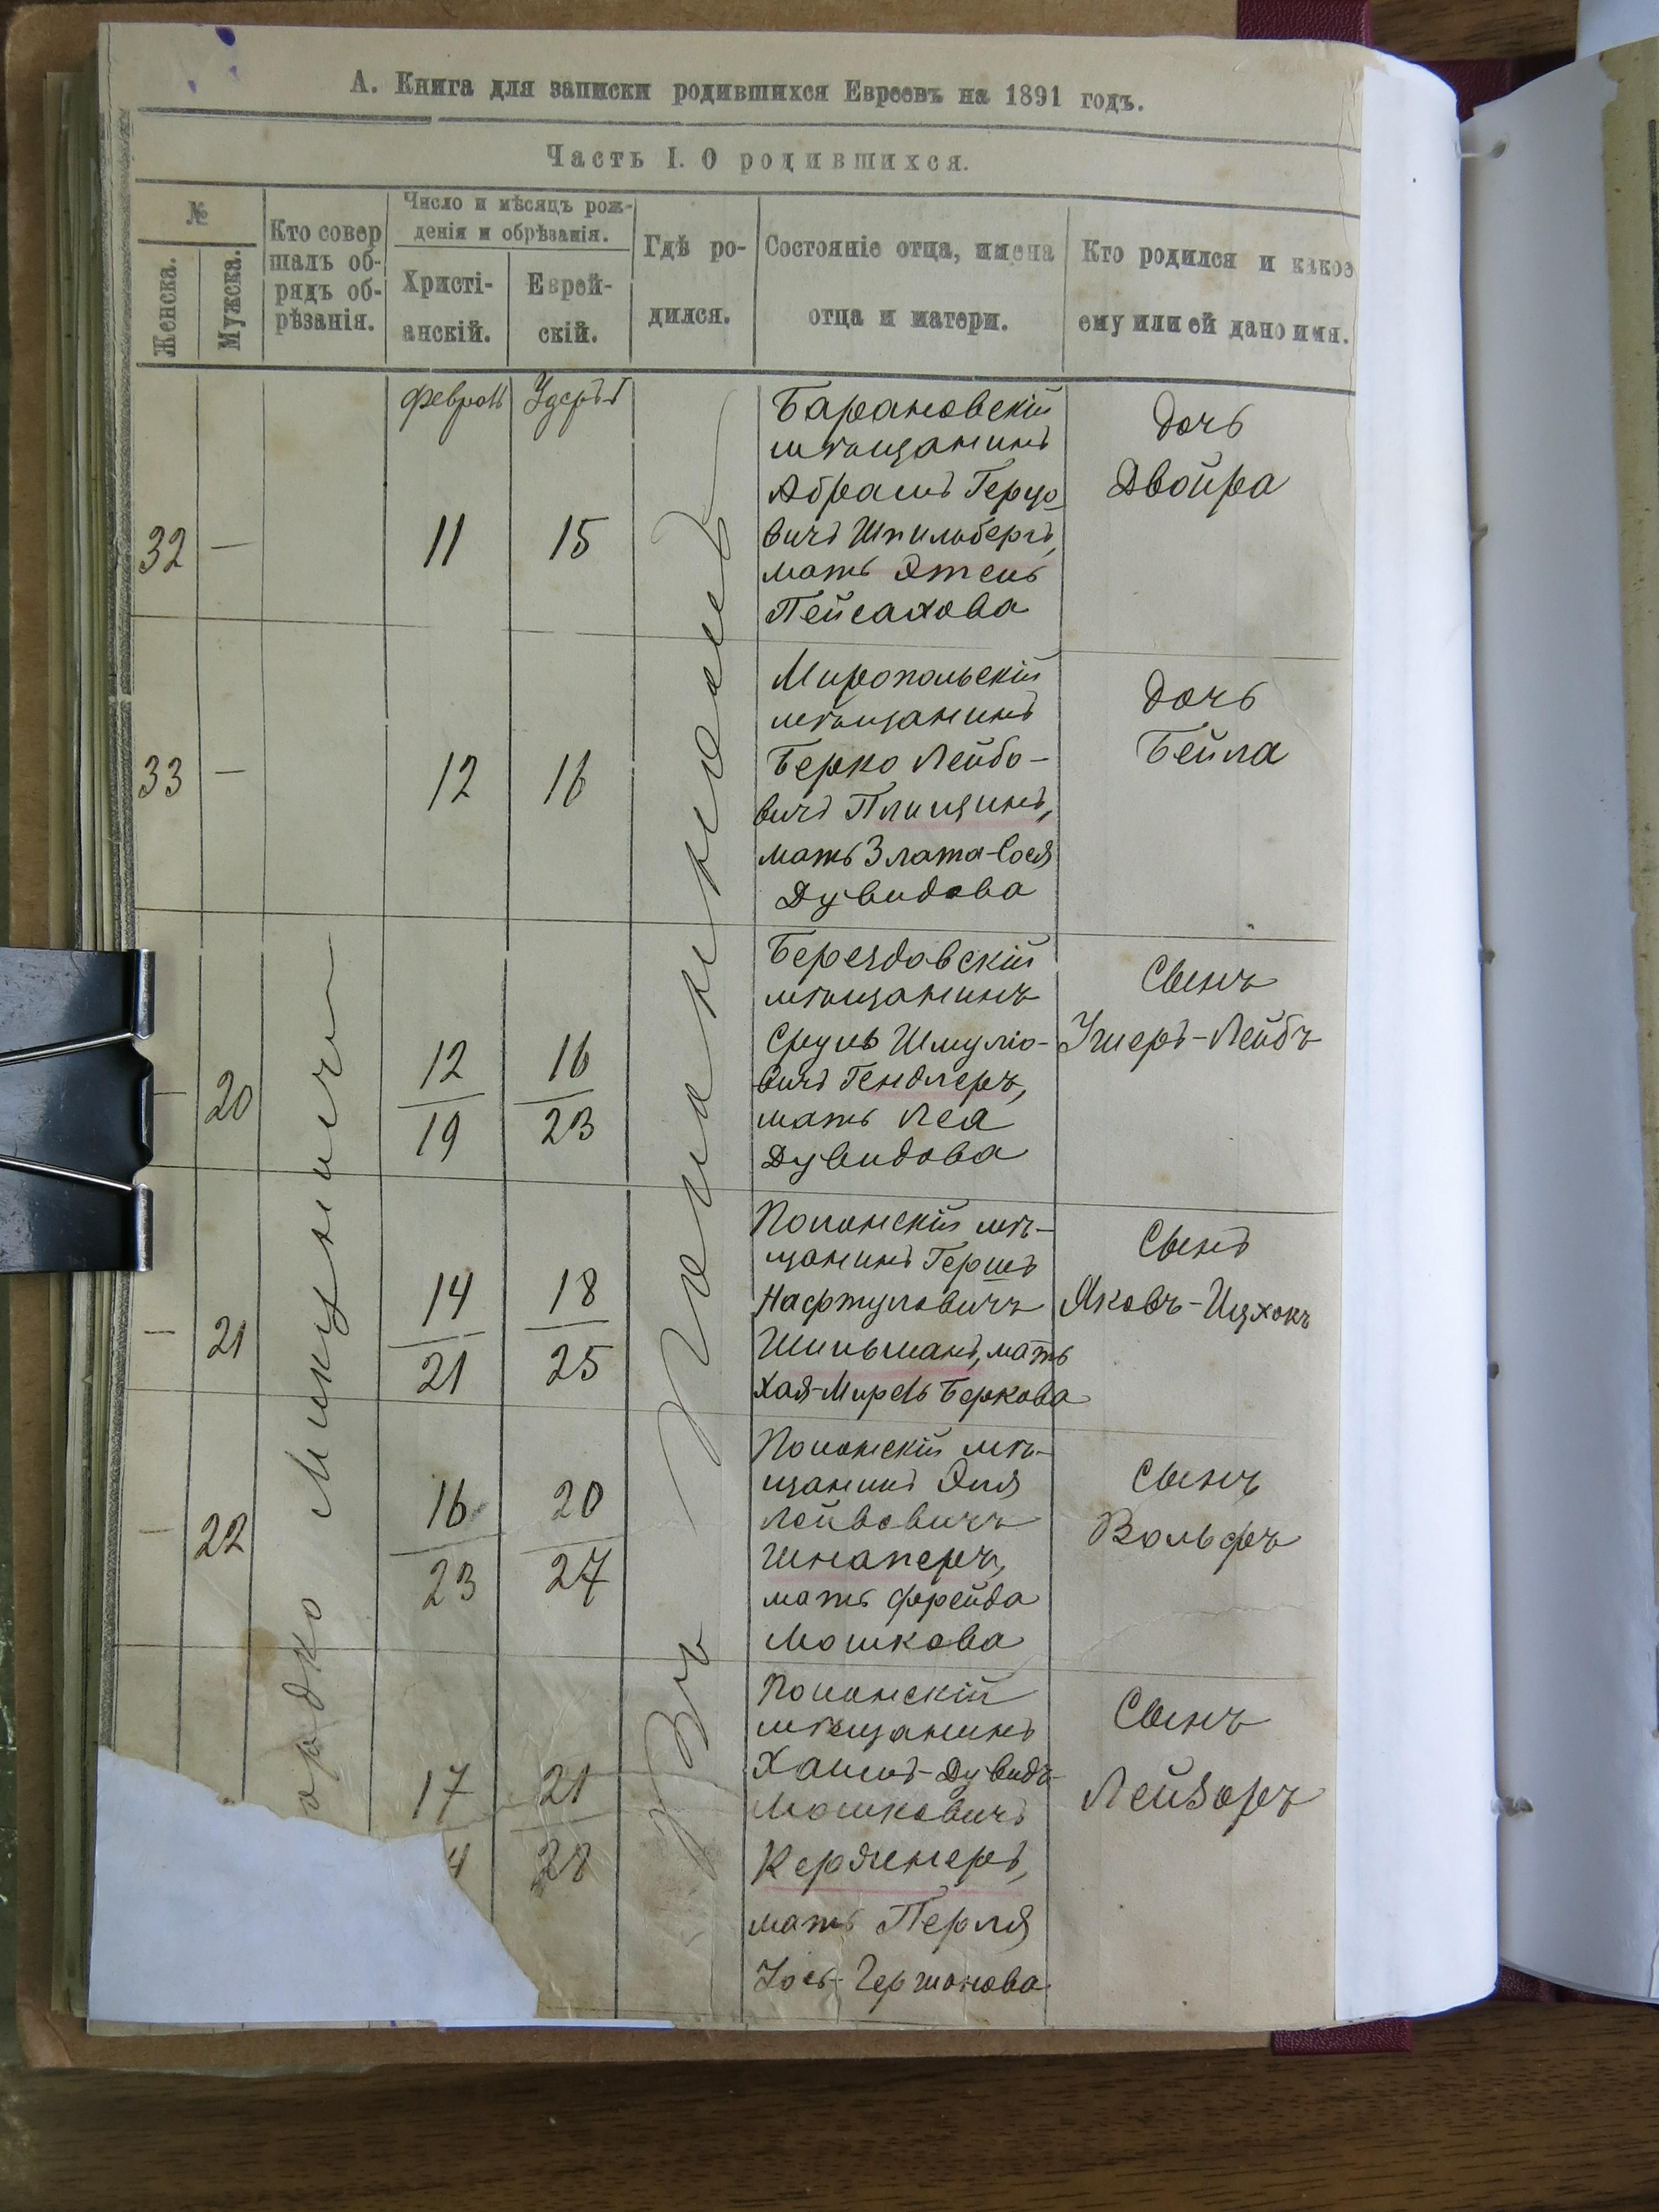 А. Книга для записки родившихся Евреевъ на 1891 годъ.
Часть I. О родившихся.
№
Женска.
Мужска.
Кто совер
шалъ об-
рядъ об-
рѣзанія.
Число и мѣсяцъ рож-
денія и обрѣзанія.
Христі-
анскій.
Еврей-
скій.
Гдѣ ро-
дился.
Состояніе отца, имена
отца и матери.
Кто родился и какое
ему или ей дано имя.
Феврал
32
—
11
15
Барановскій
мѣщанинъ
Абрамъ Герцо
вичъ Шпильбергъ,
мать Этель
Пейсахова
Дочь
Двойра
33
—
12
16
Миропольскій
мѣщанинъ
Берко Лейбо-
вичъ Плищинъ,
мать Злата-Сося
Дувидова
Дочь
Бейла
—
20
12
19
16
23
Берездовскій
мѣщанинъ
Сруль Шмуліо-
вичъ Гендлеръ,
мать Леа
Дувидова
Сынъ
Ушеръ-Лейбъ
—
21
14
21
18
25
Полонскій мѣ-
щанинъ Гершъ
Нафтуловичъ
Шильманъ, мать
Хая-Мирель Беркова
Сынъ
Яковъ-Ицхокъ
—
22
16
23
20
27
Полонскій мѣ-
щанинъ Эля
Лейвовичъ
Шнаперъ,
мать Фрейда
Мошкова
Сынъ
Вольфъ
17
4
21
28
Полонскій
мѣщанинъ
Хаимъ-Дувидъ
Мошковичъ
мать Перля
Сынъ
Лейзоръ
Въ